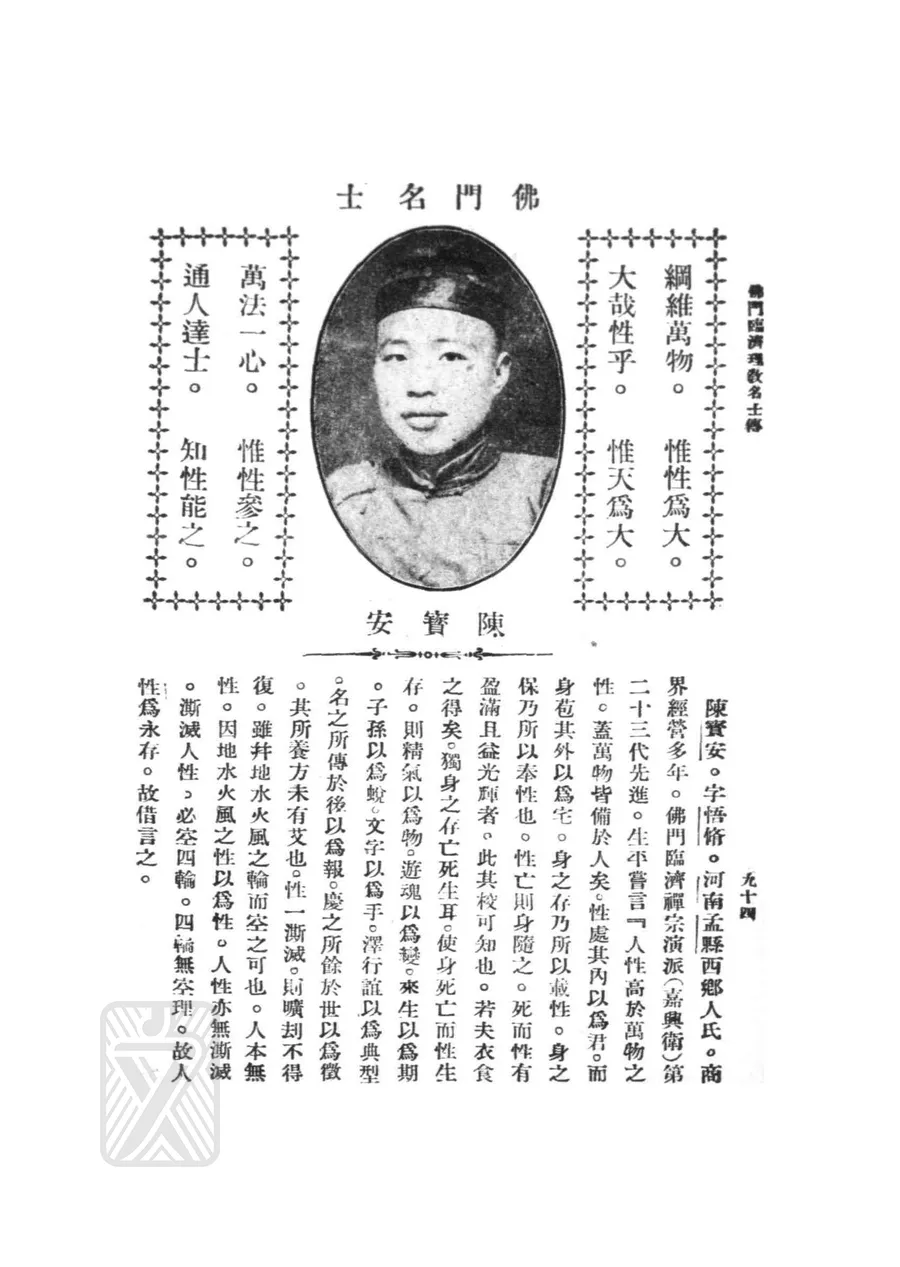 佛門臨濟理教名士傳
九十四
佛門名士
綱維萬物。　惟性爲大。
大哉性乎。　惟天爲大。
萬法一心。　惟性參之。
通人達士。　知性能之。
陳寶安
陳寶安。字悟脩。河南孟縣西鄉人氏。商
界經營多年。佛門臨濟禪宗演派（嘉興衛）第
二十三代先進。生平嘗言『人性高於萬物之
性。蓋萬物皆備於人矣。性處其內以爲君。而
身苞其外以爲宅。身之存乃所以載性。身之
保乃所以奉性也。性亡則身隨之。死而性有
盈滿且益光輝者。此其校可知也。若夫衣食
之得矣。獨身之存亡死生耳。使身死亡而性生
存。則精氣以爲物。遊魂以爲變。來生以爲期
。子孫以爲蛻。文字以爲手。澤行誼以爲典型
。名之所傳於後以爲報。慶之所餘於世以爲徵
。其所養方未有艾也。性一澌滅。則曠刦不得
復。雖幷地水火風之輪而空之可也。人本無
性。因地水火風之性以爲性。人性亦無澌滅
。澌滅人性。必空四輪。四輪無空理。故人
性爲永存。故借言之。